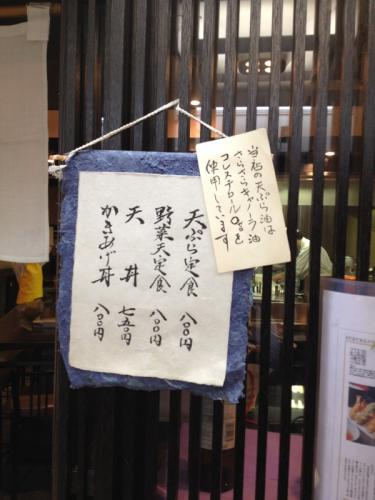 当店の天ぷら油は
さらさらキャノーラ油
コレステロール0gを
使用しています
天ぷら定食 八〇〇円
野菜天定食 八〇〇円
天丼 七五〇円
かきあげ丼 八〇〇円